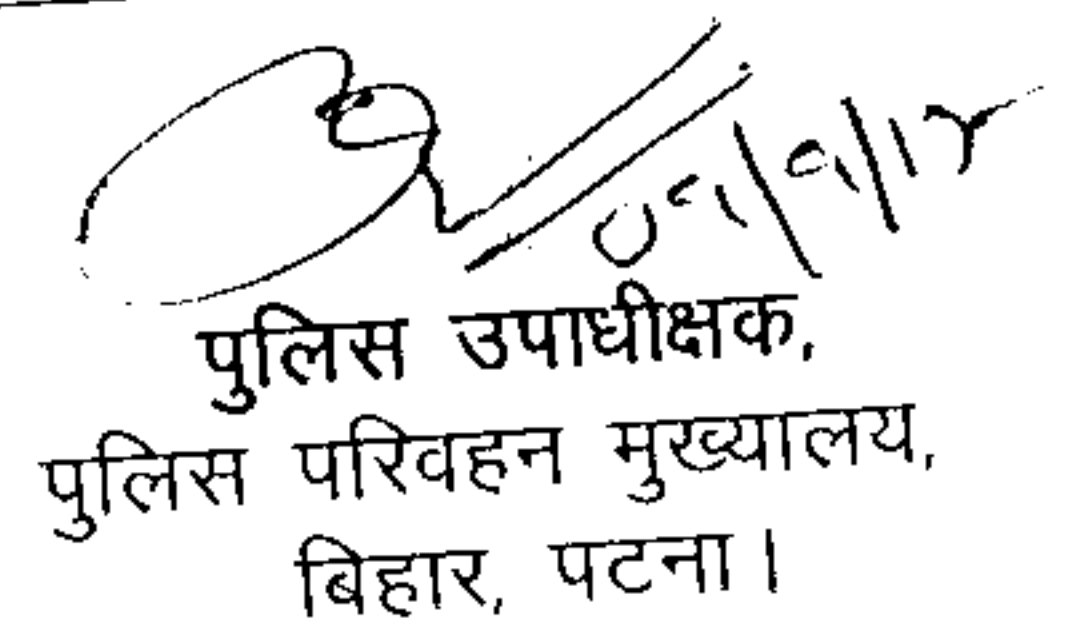 पुलिस उपाधीक्षक,
पुलिस परिवहन मुख्यालय,
बिहार, पटना।